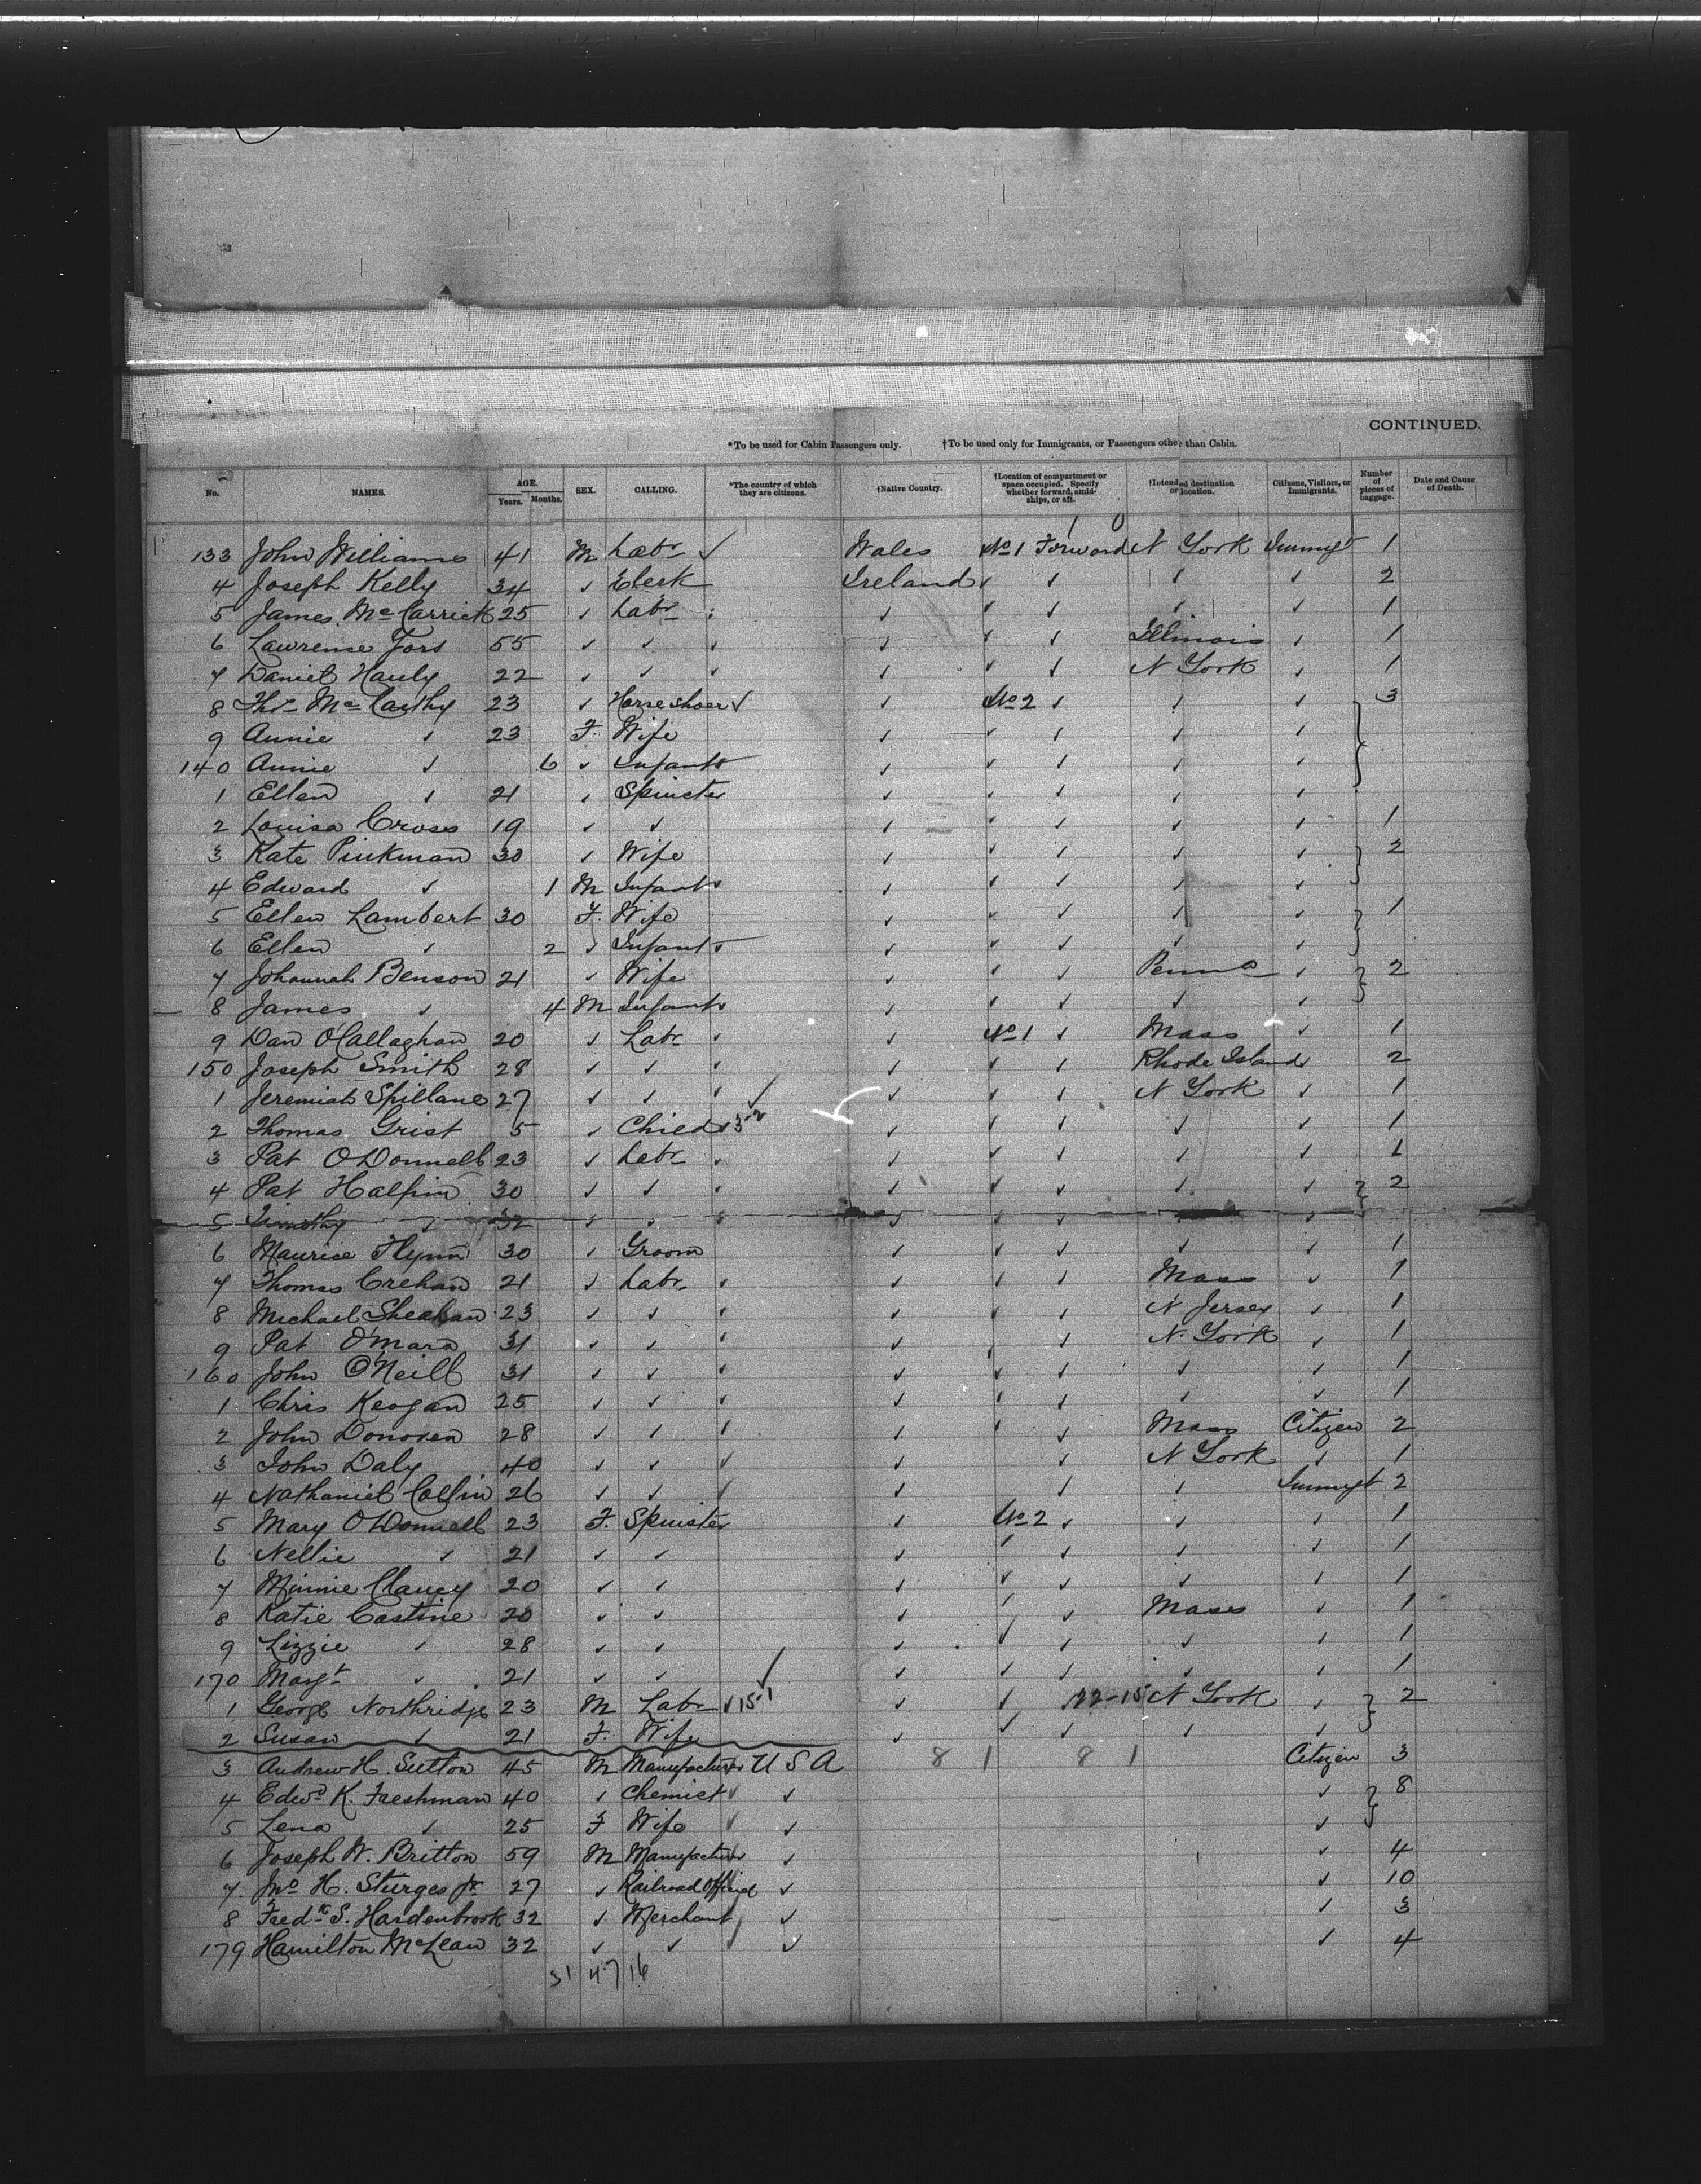 CONTINUED.
*To be used for Cabin Passengers only. †To be used only for Immigrants, or Passengers other than Cabin.
No. NAMES. AGE. Years. Months. SEX. CALLING. *The country of which they are citizens. †Native Country. †Location of compartment or space occupied. Specify whether forward, amidships, or aft. †Intended destination or location. Citizens, Visitors, or Immigrants. Number of pieces of baggage. Date and Cause of Death.
133 John Williams 41 M Labr ✓ Wales No 1 Forward N York Immgt 1
4 Joseph Kelly 34 ✓ Clerk Ireland ✓ ✓ ✓ ✓ 2
5 James McCarrick 25 ✓ Labr ✓ ✓ ✓ ✓ ✓ 1
6 Lawrence 55 ✓ ✓ ✓ ✓ ✓ ✓ Illinois ✓ 1
7 Daniel Hauly 22 ✓ ✓ ✓ ✓ ✓ ✓ N York ✓ 1
8 Thos McCarthy 23 ✓ Horse shoer ✓ ✓ No 2 ✓ ✓ ✓ 3
9 Annie ✓ 23 F. Wife ✓ ✓ ✓ ✓ ✓
140 Annie ✓ 6 ✓ Infant ✓ ✓ ✓ ✓ ✓
1 Ellen ✓ 21 ✓ Spinster ✓ ✓ ✓ ✓ ✓
2 Louisa Cross 19 ✓ ✓ ✓ ✓ ✓ ✓ ✓ 1
3 Kate Pinkman 30 ✓ Wife ✓ ✓ ✓ ✓ ✓ 2
4 Edward ✓ 1 M Infant ✓ ✓ ✓ ✓ ✓
5 Ellen Lambert 30 F. Wife ✓ ✓ ✓ ✓ ✓ 1
6 Ellen ✓ 2 ✓ Infant ✓ ✓ ✓ ✓ ✓
7 Johannah Benson 21 ✓ Wife ✓ ✓ ✓ Penna ✓ 2
8 James ✓ 4 M Infant ✓ ✓ ✓ ✓ ✓
9 Dan O'Callaghan 20 ✓ Labr ✓ ✓ No 1 ✓ Mass ✓ 1
150 Joseph Smith 28 ✓ ✓ ✓ ✓ ✓ ✓ Rhode Island ✓ 2
1 Jeremiah Spillane 27 ✓ ✓ ✓ ✓ ✓ ✓ N York ✓ 1
2 Thomas Grist 5 ✓ Child ✓ ✓ ✓ ✓ ✓ 1
3 Pat O'Donnell 23 ✓ Labr ✓ ✓ ✓ ✓ ✓ ✓ 1
4 Pat Halpin 30 ✓ ✓ ✓ ✓ ✓ ✓ ✓ ✓ 2
5 Timothy ✓ 32 ✓ ✓ ✓ ✓ ✓ ✓ ✓ ✓
6 Maurice Flynn 30 ✓ Groom ✓ ✓ ✓ ✓ ✓ 1
7 Thomas Crehan 21 ✓ Labr ✓ ✓ ✓ ✓ Mass ✓ 1
8 Michael Sheahan 23 ✓ ✓ ✓ ✓ ✓ ✓ N Jersey ✓ 1
9 Pat O'Mara 31 ✓ ✓ ✓ ✓ ✓ ✓ N. York ✓ 1
160 John O'Neill 31 ✓ ✓ ✓ ✓ ✓ ✓ ✓ ✓ 1
1 Chris Keogan 25 ✓ ✓ ✓ ✓ ✓ ✓ ✓ ✓ 1
2 John Donovan 28 ✓ ✓ ✓ ✓ ✓ ✓ Mass Citizen 2
3 John Daly 40 ✓ ✓ ✓ ✓ ✓ N York ✓ 1
4 Nathaniel 26 ✓ ✓ ✓ ✓ ✓ ✓ Immgt 2
5 Mary O'Donnell 23 F. Spinster ✓ No 2 ✓ ✓ ✓ 1
6 Nellie ✓ 21 ✓ ✓ ✓ ✓ ✓ ✓ ✓ 1
7 Minnie Clancy 20 ✓ ✓ ✓ ✓ ✓ ✓ ✓ 1
8 Katie Castine 20 ✓ ✓ ✓ ✓ ✓ Mass ✓ 1
9 Lizzie ✓ 28 ✓ ✓ ✓ ✓ ✓ ✓ ✓ 1
170 Margt ✓ 21 ✓ ✓ ✓ ✓ ✓ ✓ ✓ 1
1 George Northridge 23 M Labr ✓ 15-1 ✓ ✓ 22-15 N York ✓ 2
2 Susan ✓ 21 F. Wife ✓ ✓ ✓ ✓ ✓
3 Andrew H. Sutton 45 M Manufacturer U S A 8 1 8 1 Citizen 3
4 Edwd K. Freshman 40 ✓ Chemist ✓ ✓ ✓ 8
5 Lena ✓ 25 F Wife ✓ ✓ ✓
6 Joseph W. Britton 59 M Manufacturer ✓ ✓ 4
7. Jno H. Sturges Jr. 27 ✓ Railroad Official ✓ ✓ 10
8 Fredk S. Hardenbrook 32 ✓ Merchant ✓ ✓ 3
179 Hamilton McLean 32 ✓ ✓ ✓ ✓ 4
31 47 16